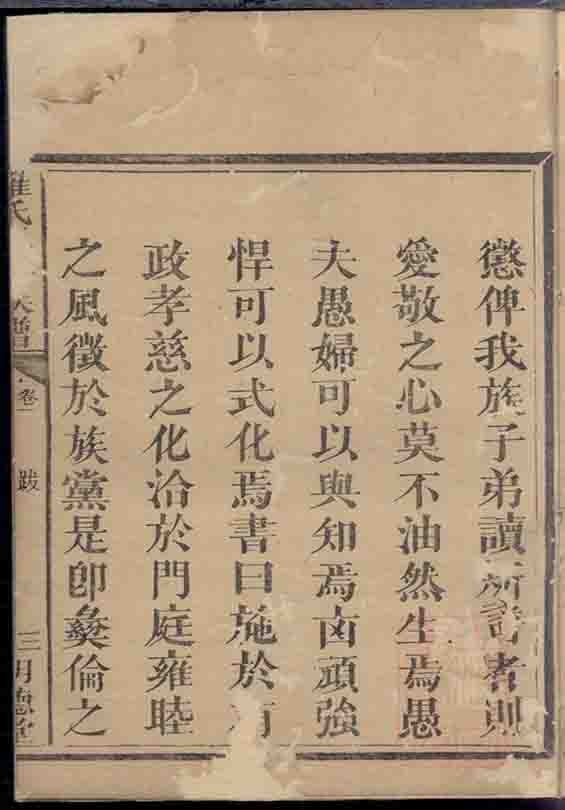 懲俾我族子弟讀斯譜者則
愛敬之心莫不油然生焉愚
夫愚婦可以與知焉卤頑強
悍可以式化焉書曰施於有
政孝慈之化洽於門庭雍睦
之風徵於族黨是卽彜倫之
羅氏 大譜 卷一 跋 三 明德堂